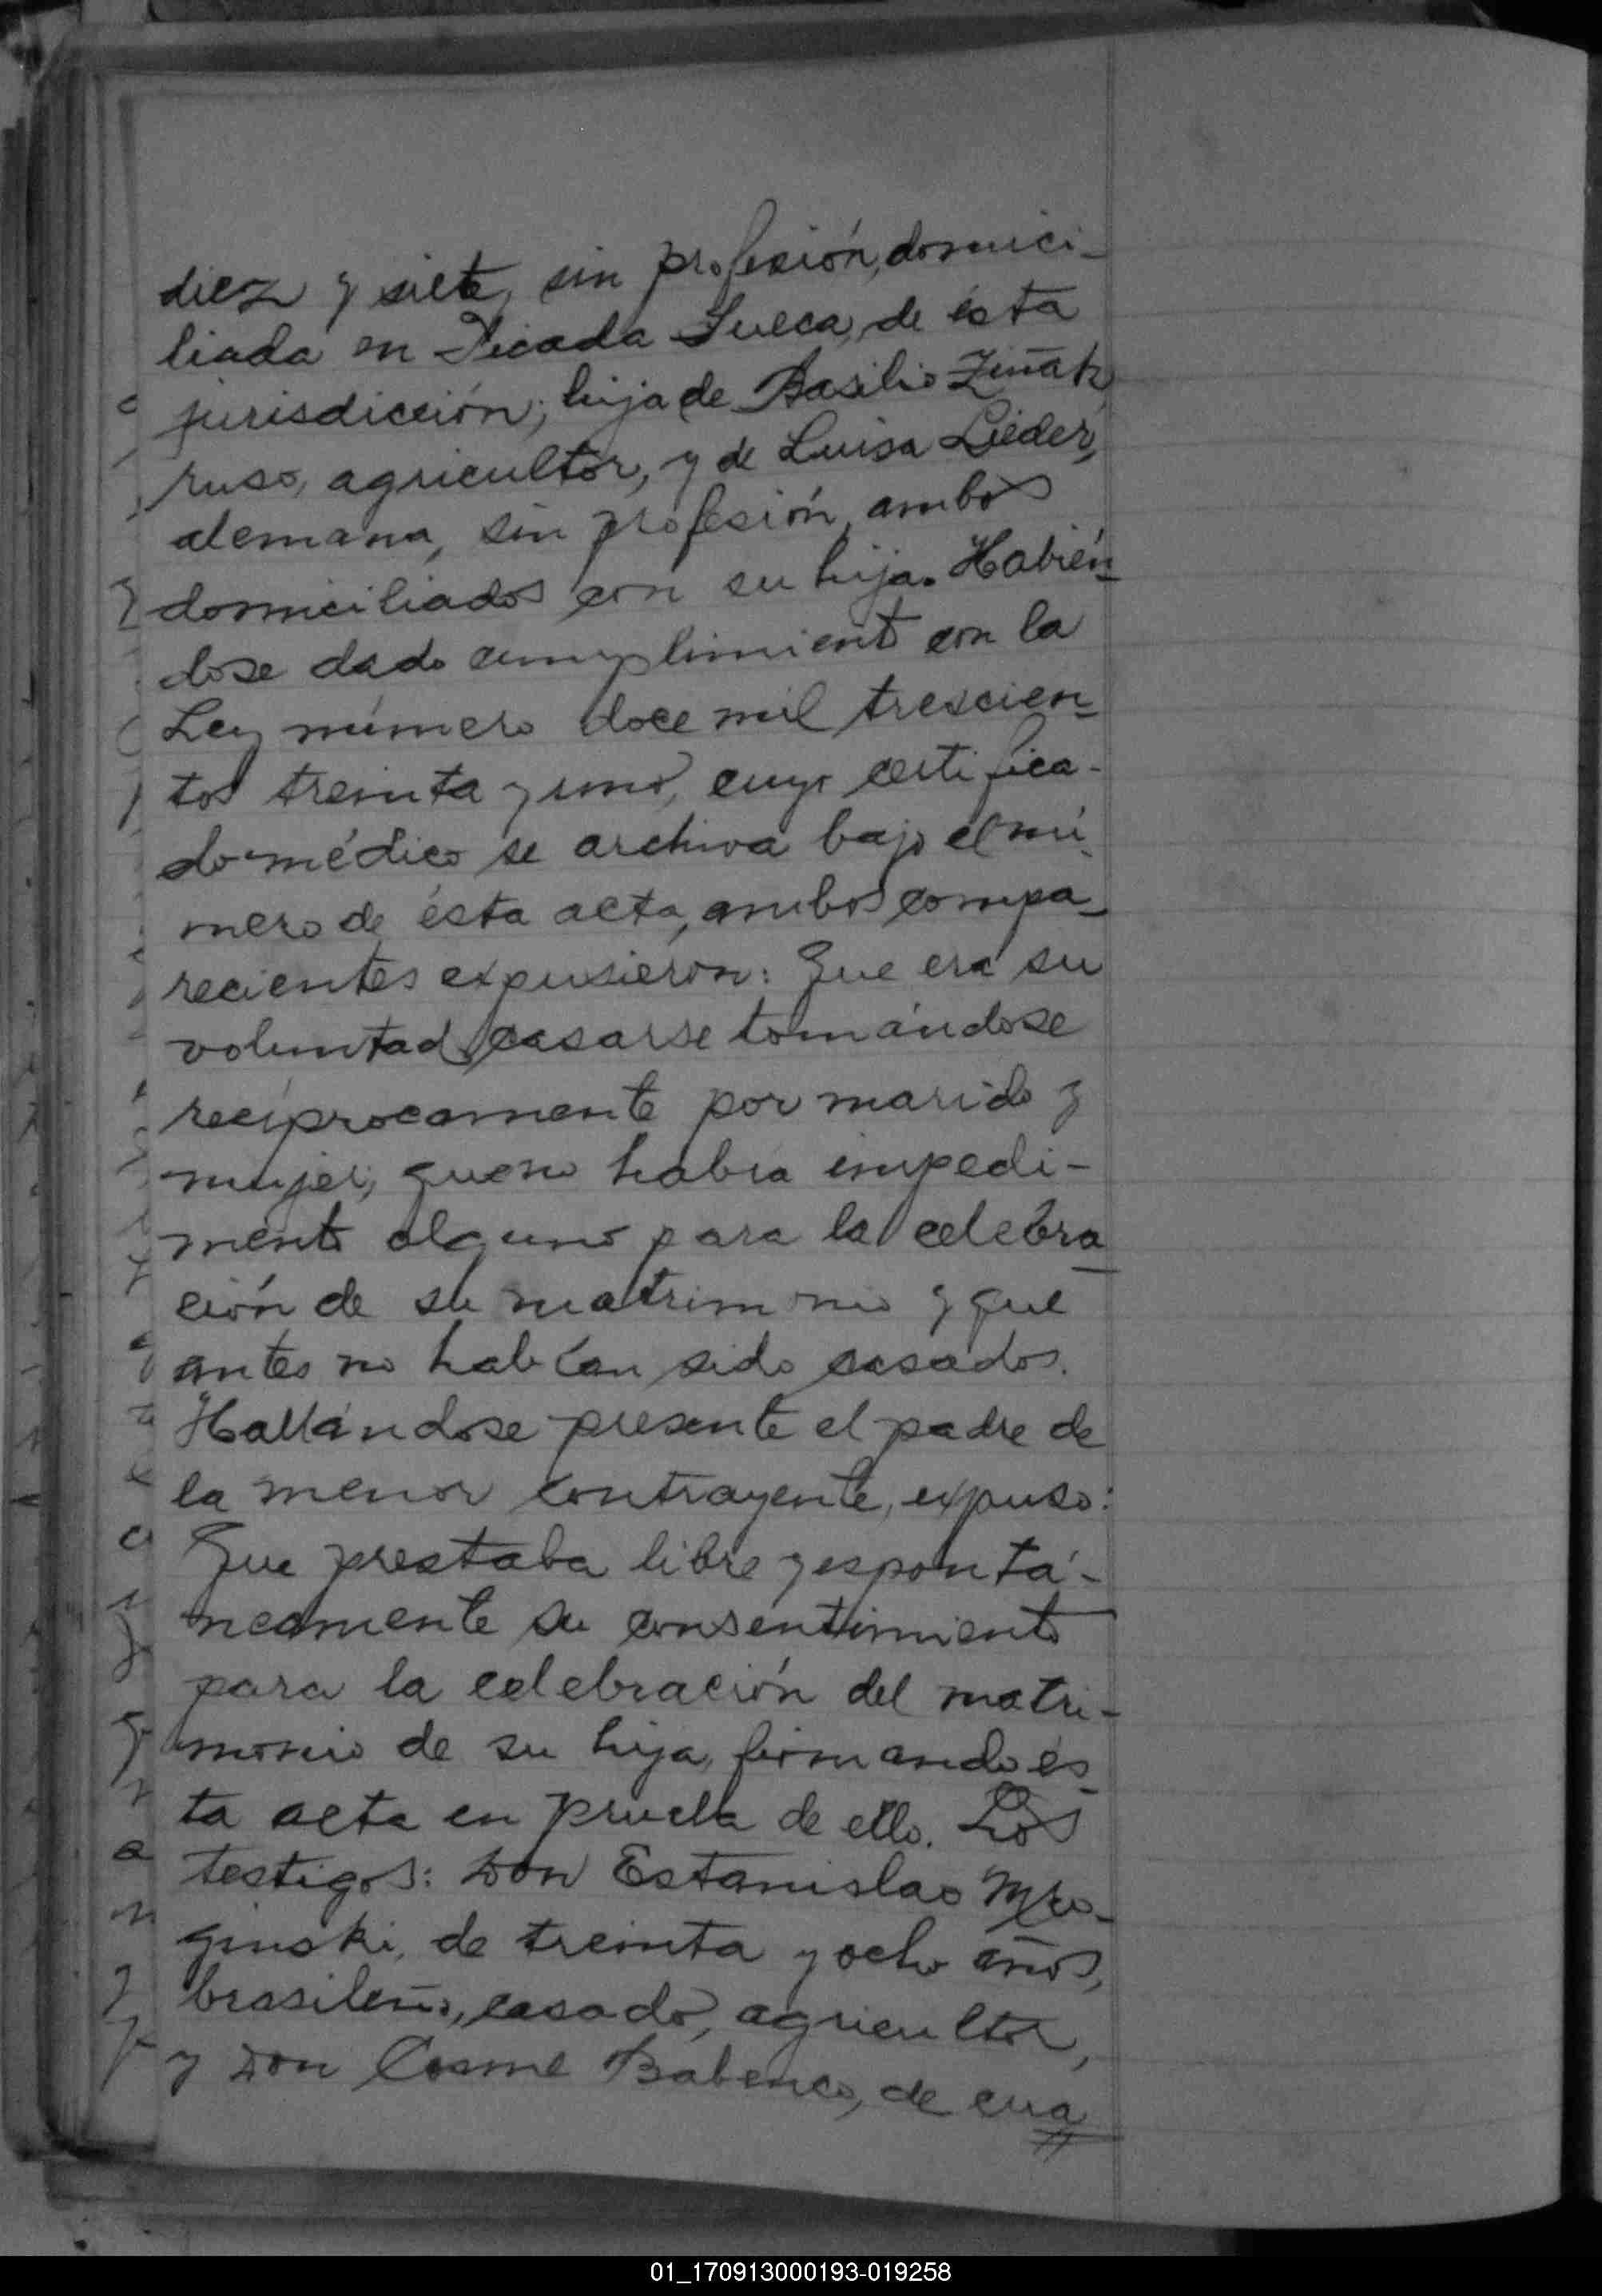 diez y siete, sin profesión, domici-
liada en Picada Sueca, de ésta
jurisdicción; hija de Basilio Ziñak
ruso, agricultor, y de Luisa Lieder,
alemana, sin profesión, ambos
domiciliados con su hija. Habién-
dose dado cumplimiento con la
Ley número doce mil trescien-
tos treinta y uno, cuyo certifica-
do médico se archiva bajo el nú-
mero de ésta acta, ambos compa-
recientes expusieron: Que era su
voluntad casarse tomándose
recíprocamente por marido y
mujer; que no había impedi-
mento alguno para la celebra-
ción de su matrimonio y que
antes no habían sido casados.
Hallándose presente el padre de
la menor contrayente, expuso:
Que prestaba libre y espontá-
neamente su consentimiento
para la celebración del matri-
monio de su hija, firmando és-
ta acta en prueba de ello. Los
testigos: Don Estanislao Mro-
ginski, de treinta y ocho años,
brasileño, casado, agricultor,
y Don Cosme Babenco, de cua
01_170913000193-019258